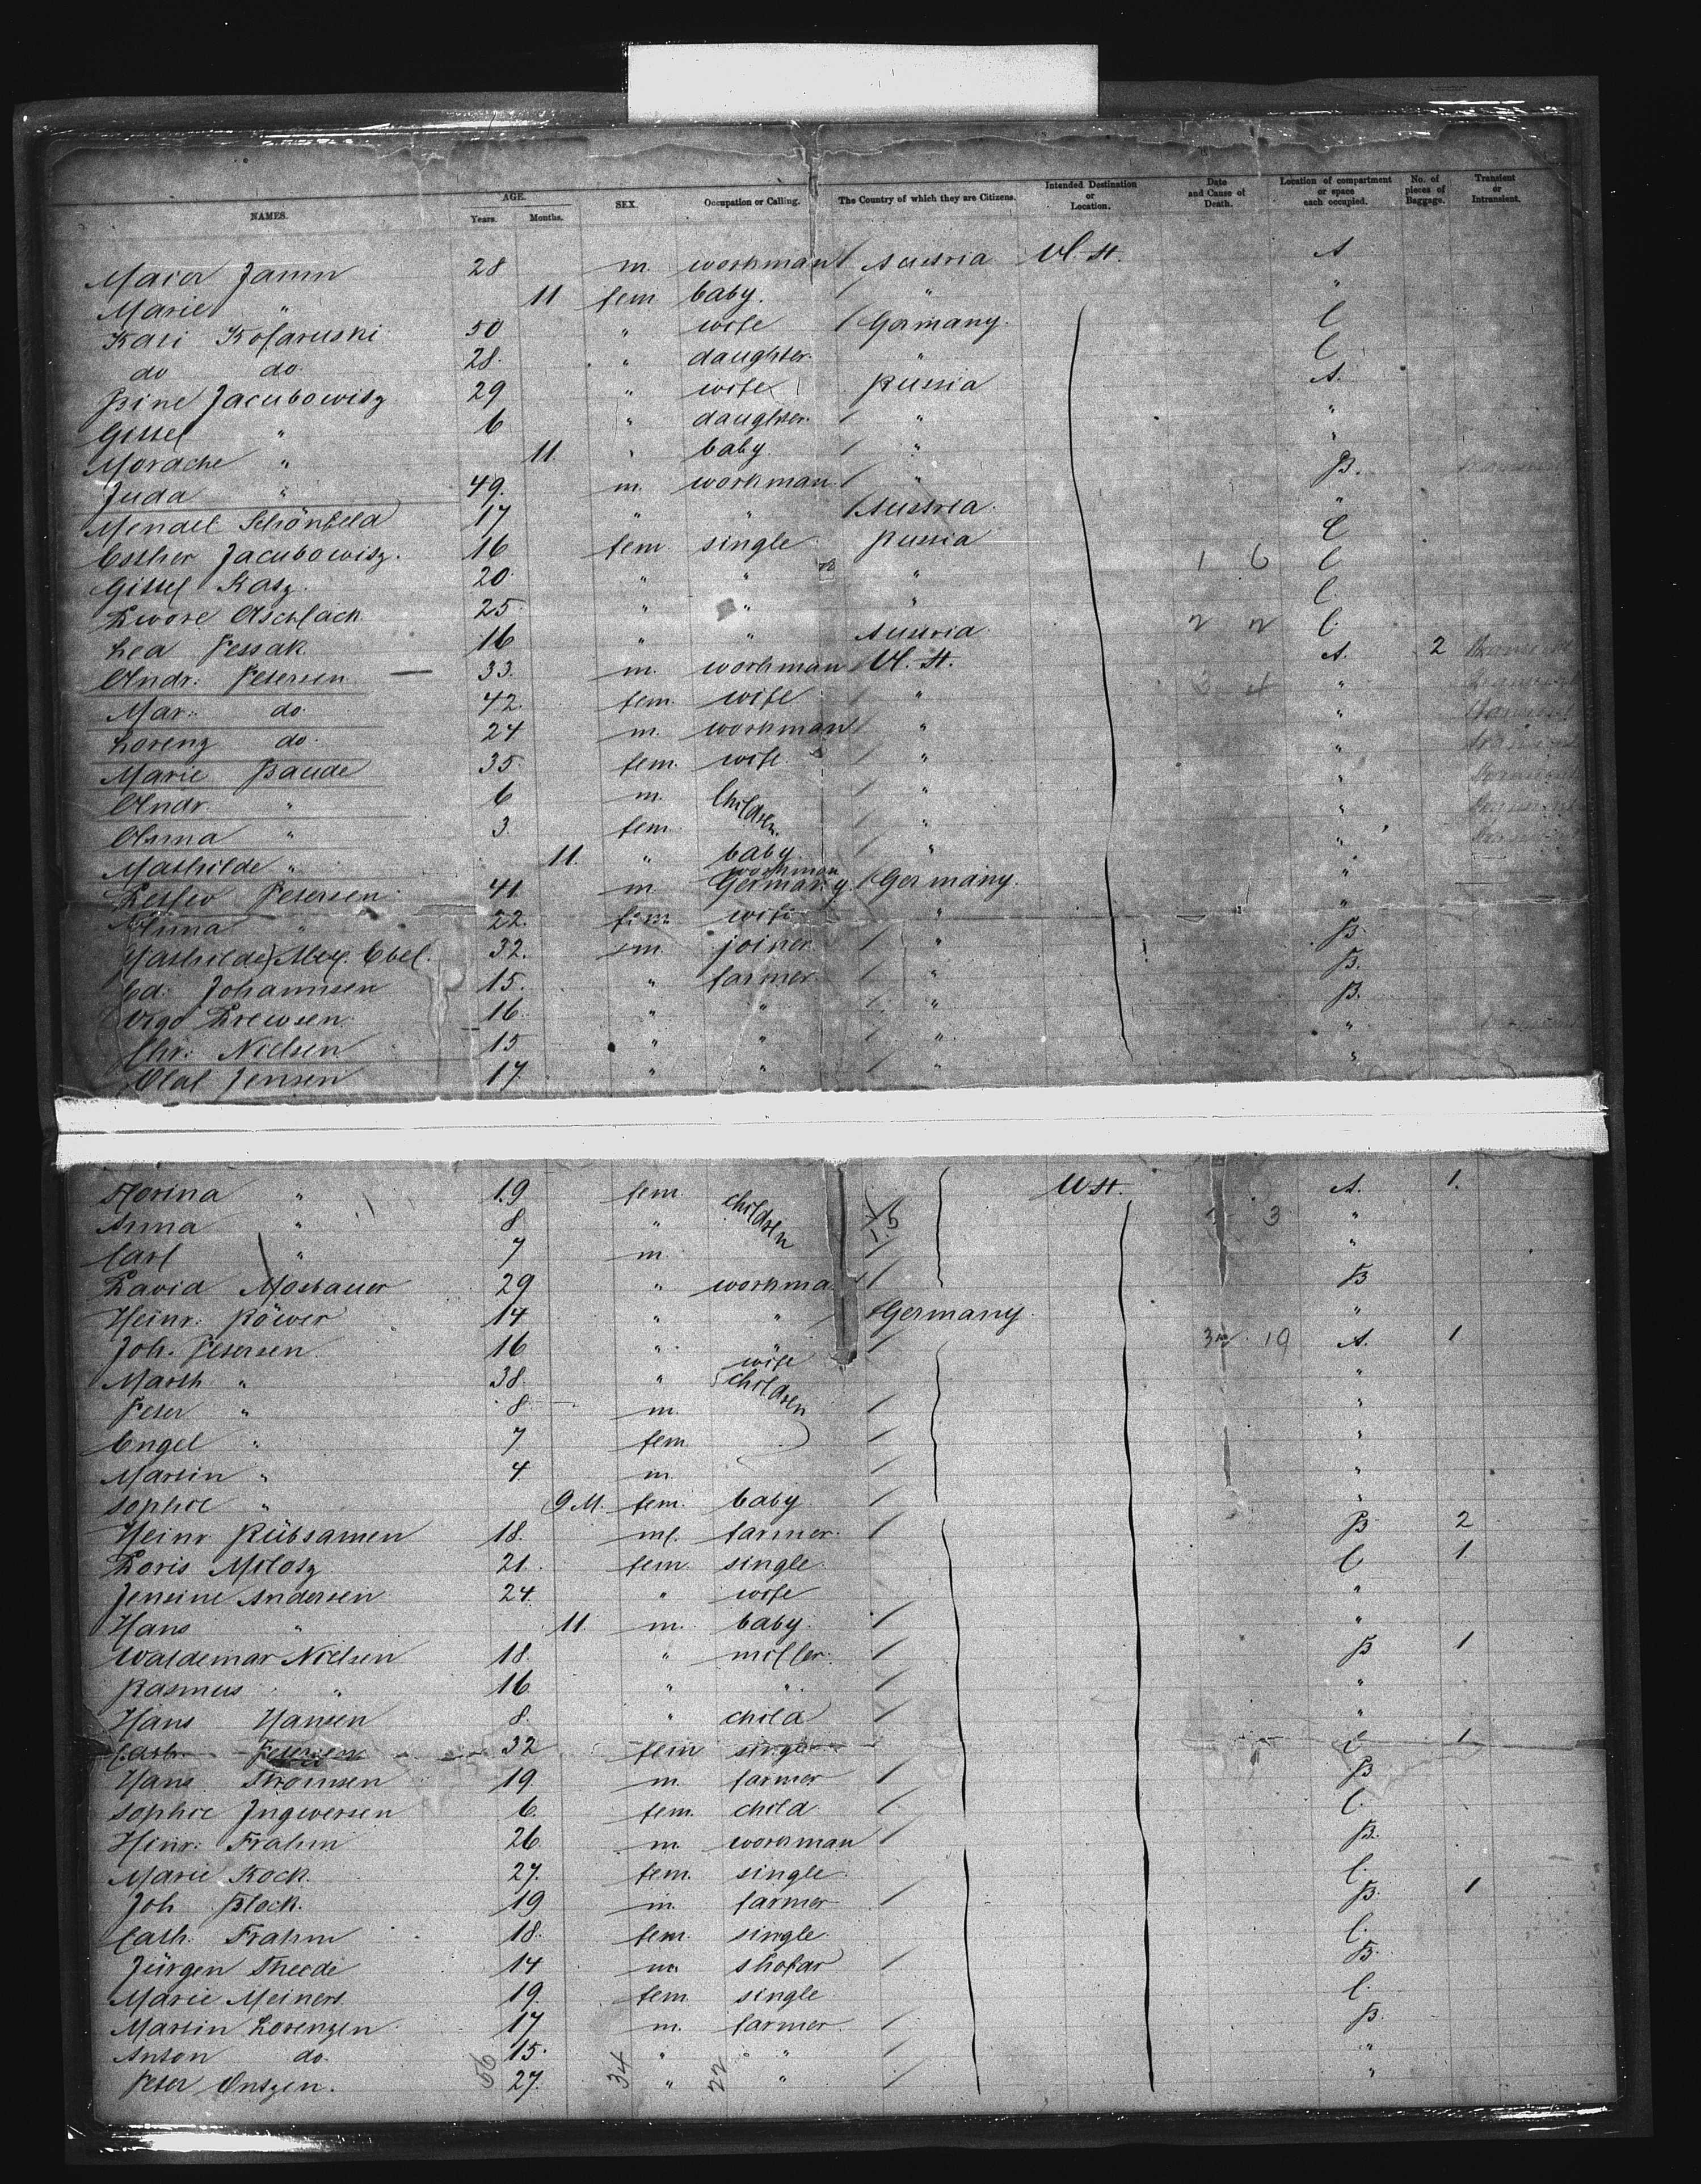 NAMES. AGE. Years. Months. SEX. Occupation or Calling. The Country of which they are Citizens. Intended Destination or Location. Date and Cause of Death. Location of compartment or space each occupied. No. of pieces of Baggage. Transient or Intransient.
28 m. workman Austria U. St. A
Marie " 11 fem baby. " "
50 " wife Germany. C
do do. 28. " daughter. " C
Jacubowitz 29 " wife Russia A.
Gittel " 6 " daughter. " "
" 11. " baby. " "
Juda " 49. m. workman. " B.
Mendel Schönfeld 17 " " Austria. "
Esther Jacubowitz. 16 fem single Russia C
Gittel Katz. 20. " " " 1 6 C
25. " " " C.
Lea Pessak 16 " " Austria. 2 2 C.
Andr. Petersen 33. m. workman U. St. A. 2
Mar. do. 42. fem. wife " 3 4 "
Lorenz do. 24 m. workman " "
Marie Baude 35. fem. wife. " "
Andr. " 6 m. Children. " "
Anna " 3. fem. " "
Mathilde " 11. " baby. " "
Detlev Petersen 41. m. workman Germany Germany. "
Anna " 22. fem. wife " "
Mathilde) Alex. Ebel. 32. m. joiner " B.
Ed. Johannsen 15. " farmer. " B.
16. " " " B.
Chr. Nielsen 15 " " " "
Olaf Jensen 17. " " " "
" 19 fem U St. A. 1.
Anna " 8 " children 3 "
Carl " 7 m. "
David 29 " workma B
Heinr. Röwer 14 " " Germany. "
Joh. Petersen 16 " 10 A. 1
Marth " 38. " wife "
Peter " 8 m. children "
Engel " 7 fem. "
Martin " 4 m. "
Sophie " 9 M. fem. baby "
Heinr Rübsamen 18. ml. farmer. B 2
Doris Milotz 21. fem. single. C 1
Jensine Andersen 24. " wife "
Hans " 11. m. baby. "
Waldemar Nielsen 18. " miller. B 1
Rasmus " 16 " " "
Hans Hansen 8. " child "
Cath. Petersen 32 fem single C. 1
Hans Thomsen 19. m. farmer B
Sophie Ingwersen 6. fem. child C.
Heinr. Frahm 26 m. workman B.
Marie Kock. 27. fem. single. C.
Joh Block. 19 m. farmer B. 1
Cath. Frahm 18. fem. single. C.
Jürgen Theede 14 m. B.
Marie Meinert 19. fem. single C.
Martin Lorenzen 17 m. farmer B.
Anton do. 15. " " "
Peter 27. " " "
56 34 22